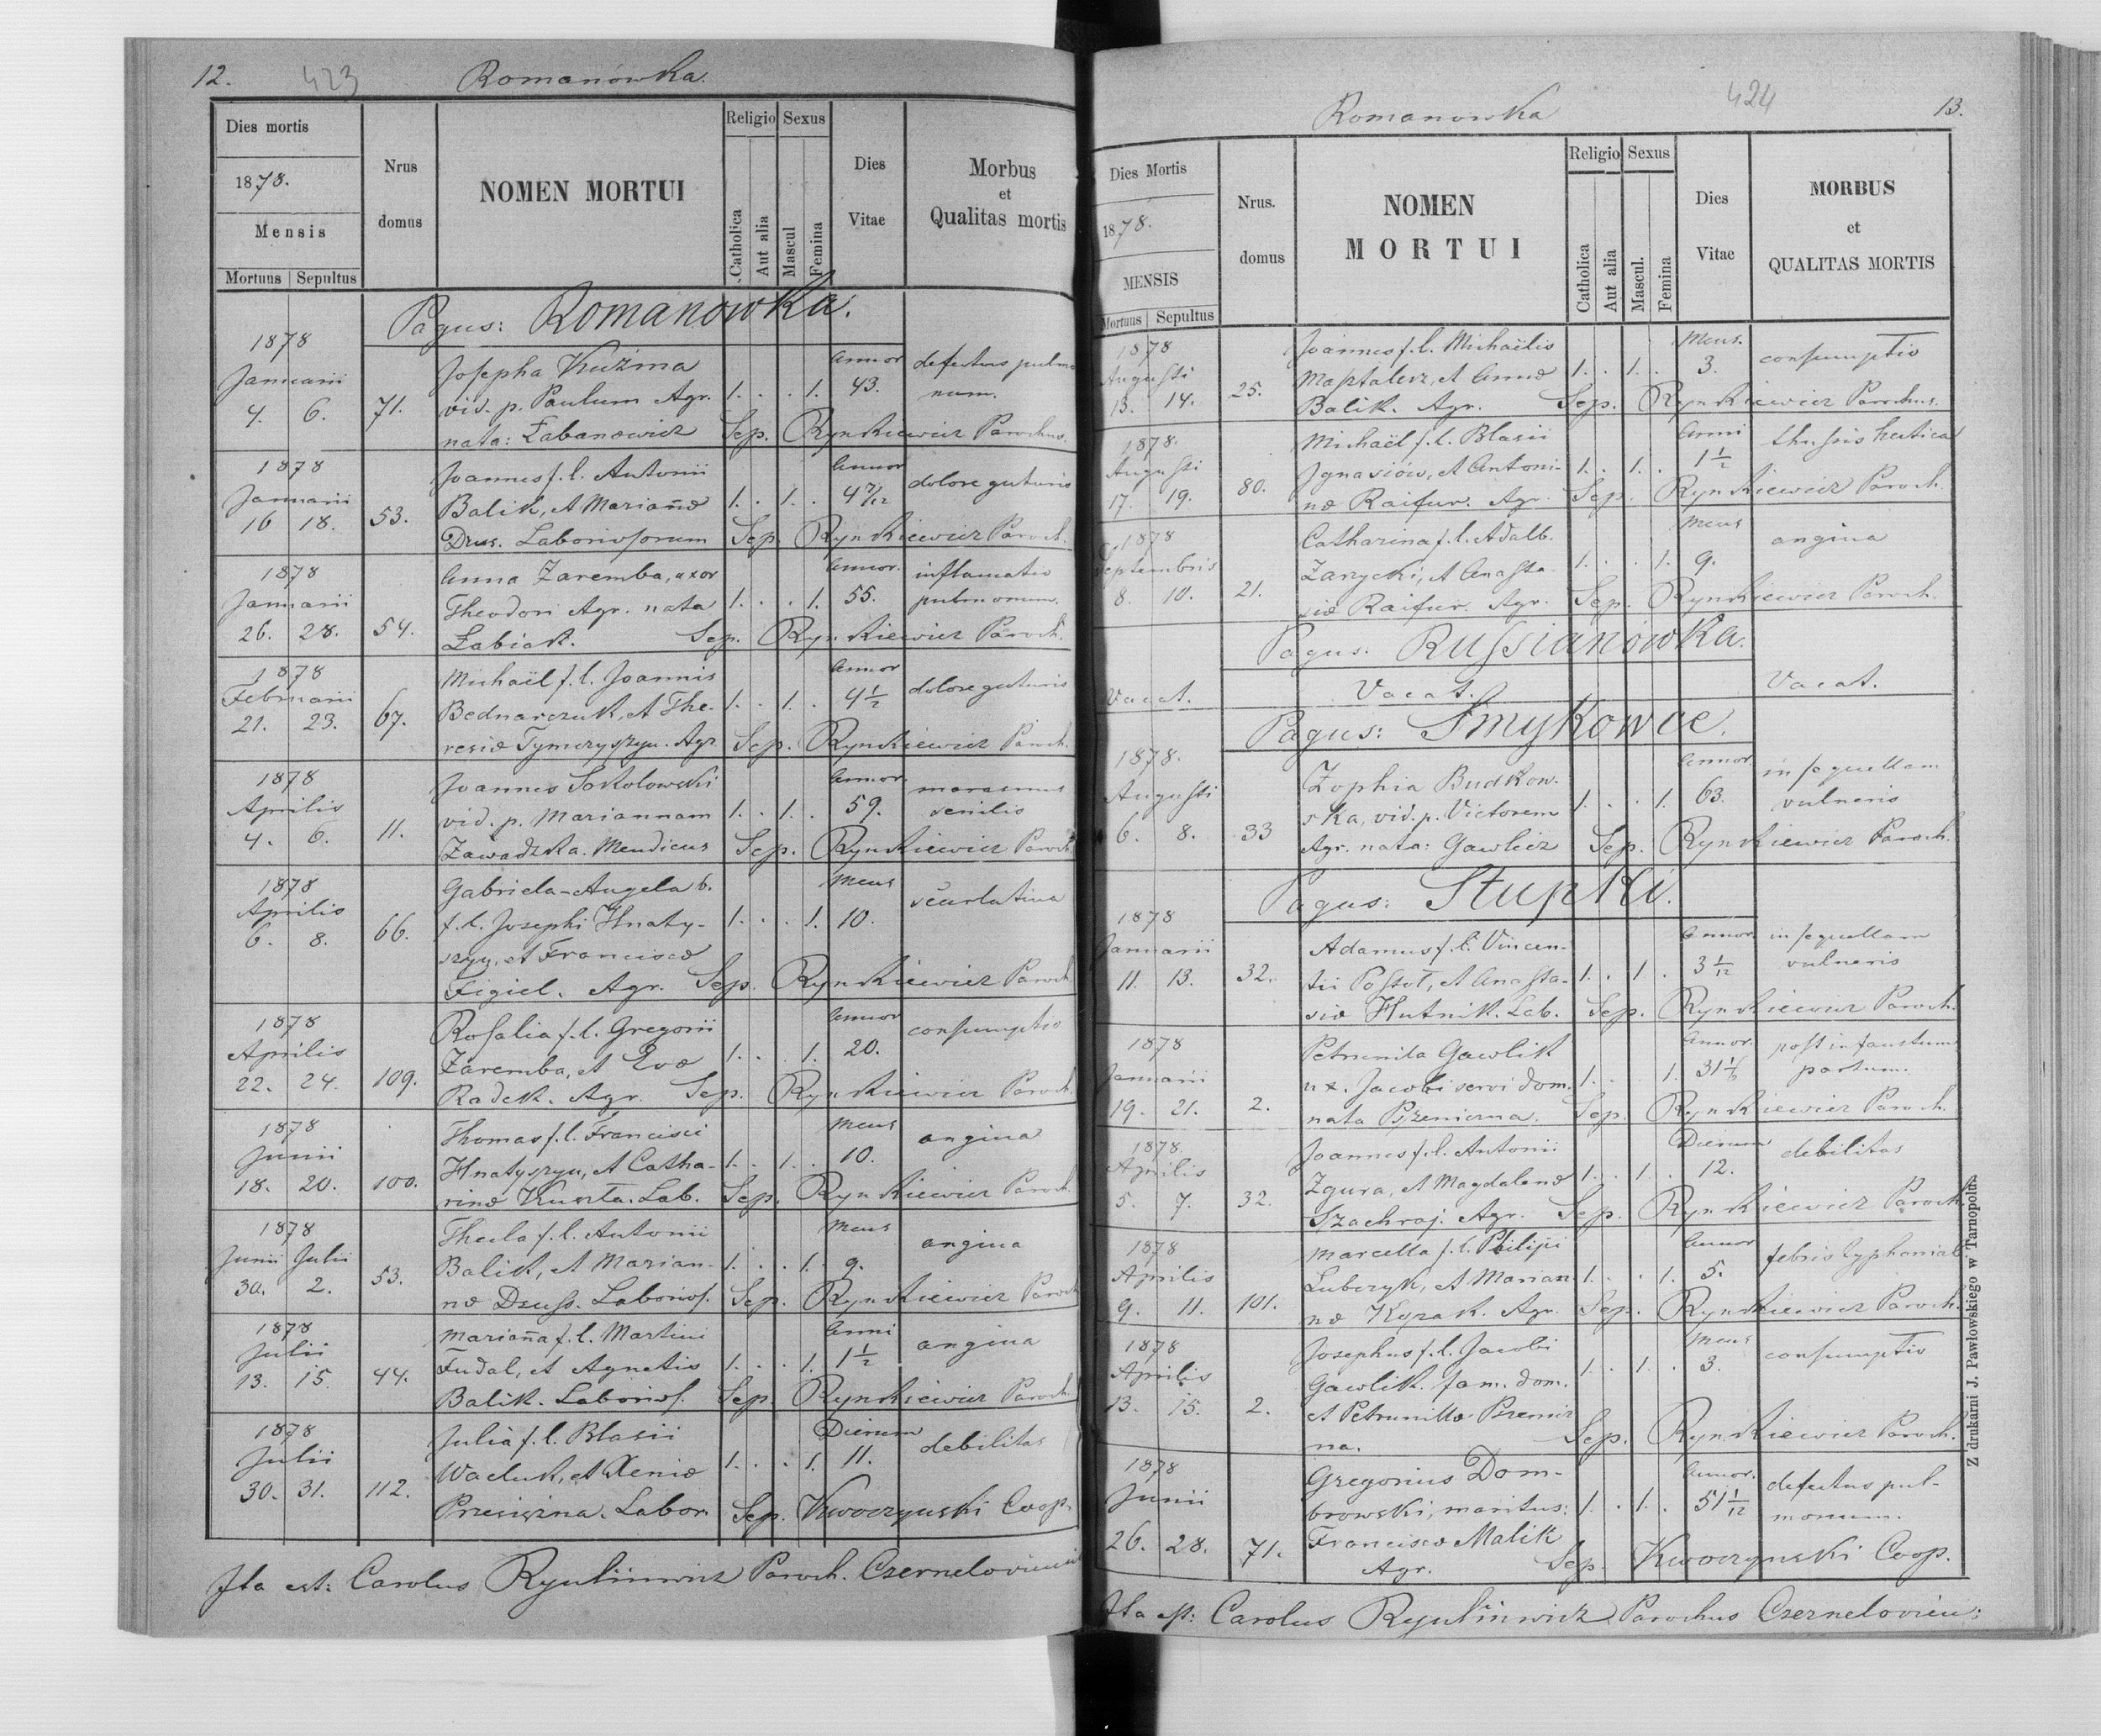 12. 423 Romanówka.
Dies mortis
1878.
Mensis
Mortuus Sepultus
Nrus
domus
NOMEN MORTUI
Religio Sexus
Catholica
Aut alia
Mascul
Femina
Dies
Vitae
Morbus
et
Qualitas mortis
Pagus: Romanowka.
1878 Josepha Kuźma Annor defectus pulmo
Januarii vid. p. Paulum Agr. 1. . . 1. 43. num.
4. 6. 71. nata: Łabanowicz Sep. Rynkiewicz Parochus.
1878 Joannes f. l. Antonii Annor dolore guturis
Januarii Balik, et Mariañæ 1. . 1. . 4 7/12
16 18. 53. Drus. Laboriosorum Sep. Rynkiewicz Paroch.
1878 Anna Zaremba, uxor Annor. inflamatio
Januarii Theodori Agr. nata 1. . . 1. 55. pulmonum.
26. 28. 54. Łabiak. Sep. Rynkiewicz Paroch.
1878 Michaël f. l. Joannis Annor dolore guturis
Februarii Bednarczuk, et The- 1. . 1. . 4 1/2
21. 23. 67. resiæ Tymczyszyn. Agr Sep. Rynkiewicz Paroch.
1878 Joannes Sokolowski Annor. marasmus
Aprilis vid. p. Mariannam 1. . 1. . 59. senilis
4. 6. 11. Zawadzka. Mendicus Sep. Rynkiewicz Paroch
1878 Gabriela-Angela b. Mens scarlatina
Aprilis f. l. Josephi Hnaty- 1. . . 1. 10.
6. 8. 66. szyn, et Franciscæ
Figiel. Agr. Sep. Rynkiewicz Paroch
1878 Rosalia f. l. Gregorii Annor consumptio
Aprilis Zaremba, et Evæ 1. . . 1. 20.
22. 24. 109. Radek. Agr. Sep. Rynkiewicz Paroch
1878 Thomas f. l. Francisci Mens angina
Junii Hnatyszyn, et Catha- 1. . 1. . 10.
18. 20. 100. rinæ Lab. Sep. Rynkiewicz Paroch
1878 Thecla f. l. Antonii Mens angina
Junii Julii Balik, et Marian- 1. . . 1. 9.
30. 2. 53. næ Druss. Laborios. Sep. Rynkiewicz Paroch
1878 Mariaña f. l. Martini Anni angina
Julii Fudal, et Agnetis 1. . . 1. 1 1/2
13. 15. 44. Balik. Laborios. Sep. Rynkiewicz Paroch.
1878 Julia f. l. Blasii Dierum debilitas
Julii Wacluk, et Xeniæ 1. . . 1. 11.
30. 31. 112. Labor. Sep. Kwoczynski Coop.
Ita est: Carolus Rynkiewicz Paroch.
Romanowka 424 13.
Dies Mortis
1878.
MENSIS
Mortuus Sepultus
Nrus.
domus
NOMEN
MORTUI
Religio Sexus
Catholica
Aut alia
Mascul.
Femina
Dies
Vitae
MORBUS
et
QUALITAS MORTIS
1878 Joannes f. l. Michaëlis Mens. consumptio
Augusti Masztalerz, et Annæ 1. . 1. . 3.
13. 14. 25. Balik. Agr. Sep. Rynkiewicz Parochus.
1878. Michaël f. l. Blasii Anni
Augusti Ignasiów, et Antoni- 1. . 1. . 1 1/2
17. 19. 80. næ Raifur. Agr. Sep. Rynkiewicz Paroch.
1878 Catharina f. l. Adalb. Mens angina
Septembris Zarycki, et Anasta- 1. . . 1. 9.
8. 10. 21. siæ Raifur. Agr. Sep. Rynkiewicz Paroch.
Pagus: Russianówka.
Vacat. Vacat. Vacat.
Pagus: Smykowce.
1878. Zophia Budkow- Annor in sequellam
Augusti ska, vid. p. Victorem 1. . . 1. 63. vulneris
6. 8. 33 Agr. nata: Gawlicz Sep. Rynkiewicz Paroch.
Pagus: Stupki.
1878 Adamus f. l. Vincen- Annor. in sequellam
Januarii tii et Anasta- 1. . 1 . 3 1/12 vulneris
11. 13. 32. siæ Hutnik. Lab. Sep. Rynkiewicz Paroch.
1878 Petrunila Gawlik Annor. post infaustum
Januarii ux. Jacobi servi dom. 1. . . 1. 31 1/6 partum.
19. 21. 2. nata Pszeniczna. Sep. Rynkiewicz Paroch.
1878 Joannes f. l. Antonii Dierum debilitas
Aprilis Zgura, et Magdalenæ 1. . 1 . 12.
5. 7. 32. Szachraj. Agr. Sep. Rynkiewicz Paroch
1878 Marcella f. l. Philipi Annor febris
Aprilis Lubczyk, et Marian- 1. . . 1. 5.
9. 11. 101. næ Agr. Sep. Rynkiewicz Paroch.
1878 Josephus f. l. Jacobi Mens consumptio
Aprilis Gawlik. fam. dom. 1. . 1. . 3.
13. 15. 2. et Petrunillæ
na. Sep. Rynkiewicz Paroch.
1878 Gregorius Dom- Annor. defectus pul-
Junii browski, maritus: 1. . 1. . 51 1/12 monum.
26. 28. 71. Franciscæ Malik
Agr. Sep. Kwoczynski Coop.
Ita est: Carolus Rynkiewicz Parochus
Z drukarni J. Pawłowskiego w Tarnopolu.